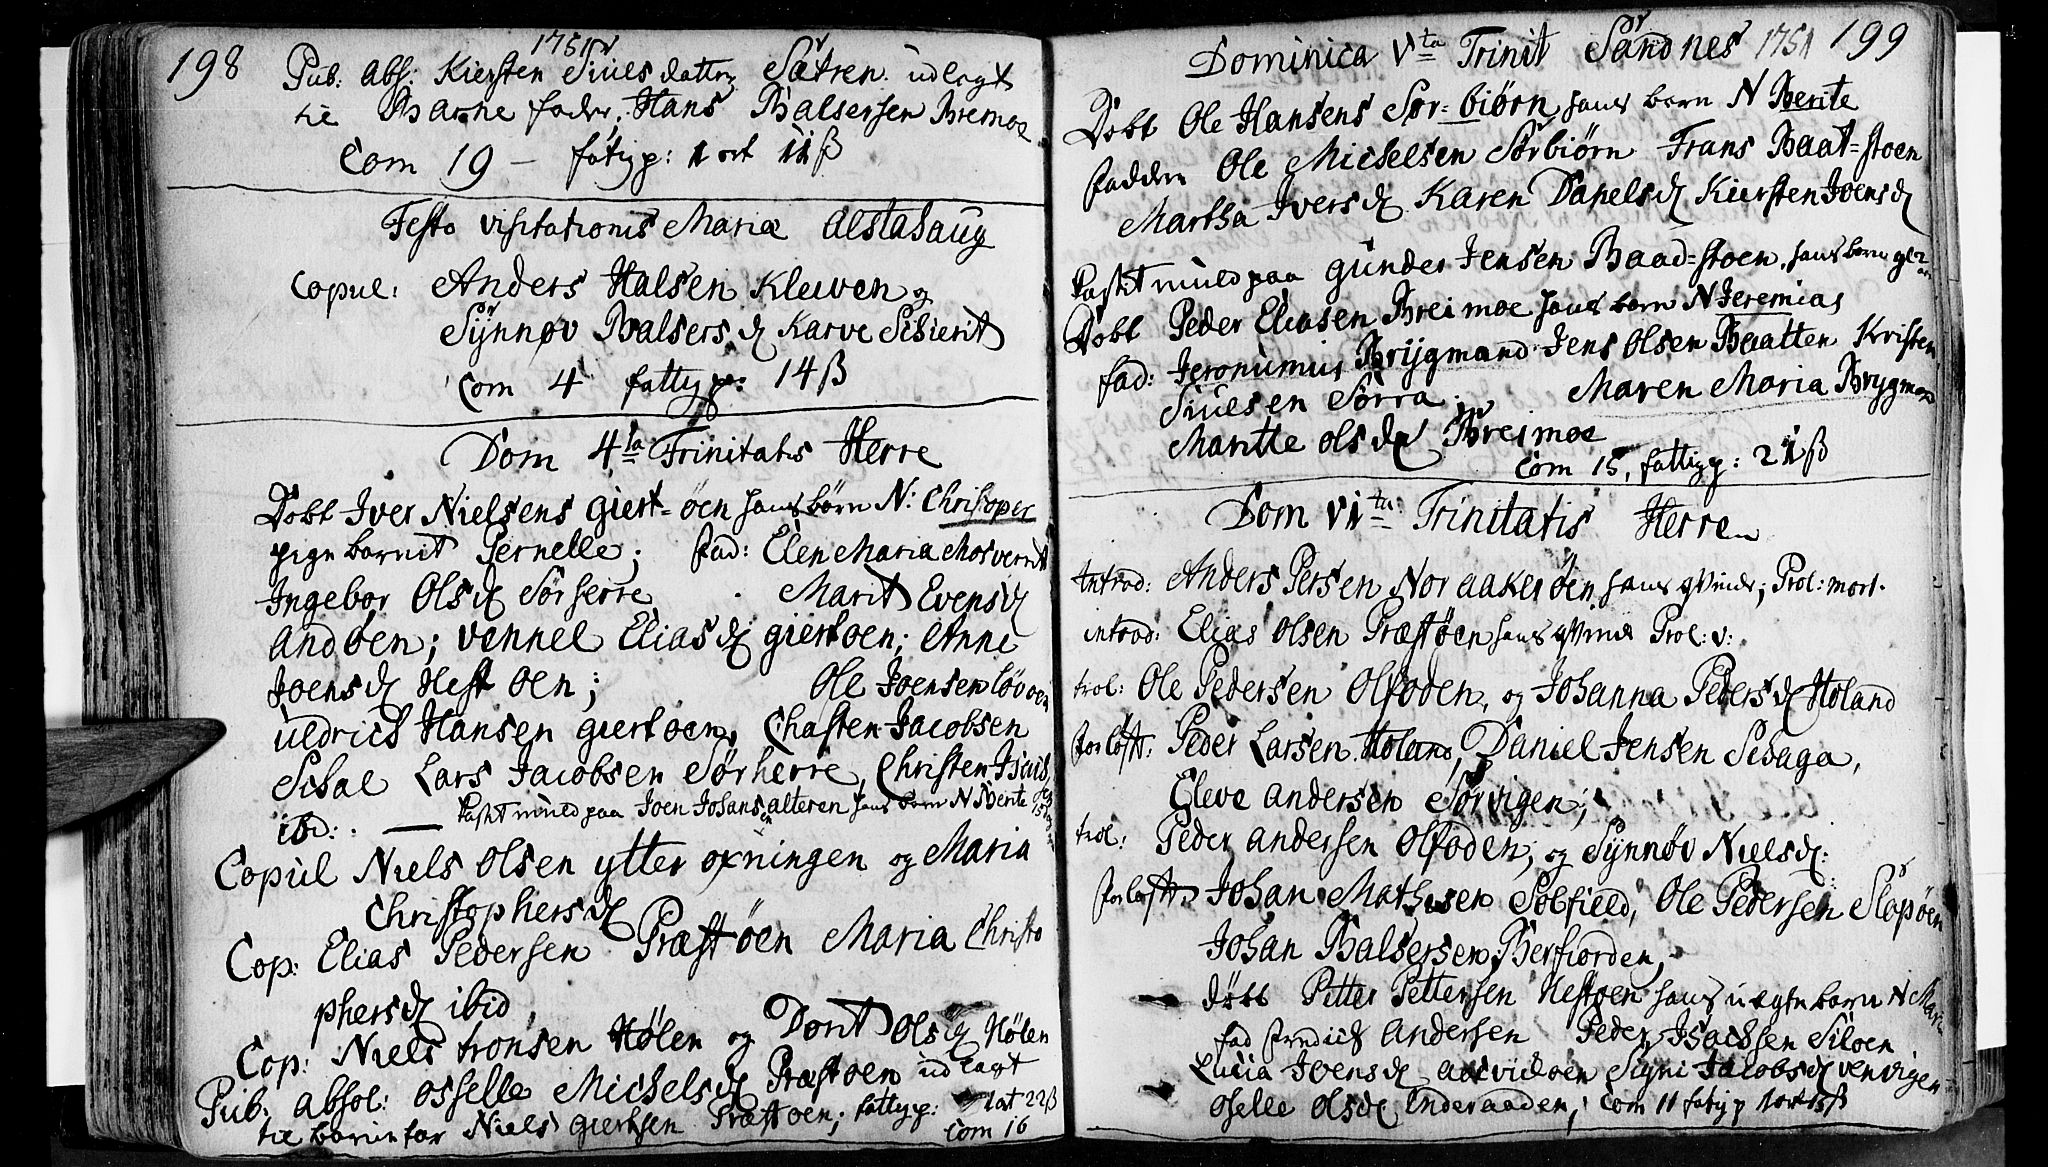 198
1751
Pub: abs: Kiersten Siuls datter Sætren udlagt
til Barne fader Hans Balsersen Bremoe
Com 19 — fatigp: 1 ort 11 ß
Festo visitationis Mariæ Alstahaug
Copul: Anders Halsen Kleiven og
Synnøv Balsers d Karve Schierit
Com 4 fattigp: 14 ß
Dom 4ta Trinitatis Herre
Døbt Iver Nielsens giert-øen hans børn N: Christoper
pige barnet Pernelle; fad: Elen Maria Mosverrit
Ingebor Ols d Sørherre Marit Evens d
andøen; Vennel Elias d giertøen; Anne
Joens d Hestøen; Ole Joensen løvøen
uldrich Hansen giertøen, Chasten Jacobsen
Schal Lars Jacobsen Sørherre, Christen
ibd: — Kast muld paa Joen Johans: alteren hans barn N Berite
Copul Niels Olsen ytter oxningen og Maria
Christophers d
Cop: Elias Pedersen Præstøen Maria Christo
phers d ibid
Cop: Niels tronsen Hølen og Dorit Ols d Hølen
Pub: absol: Osselle Michels d Præstøen udlagt
til barnefar Niels giertsen Præstøen; fattigp: 1 ort 22 ß
Com 16
Dominica Vta Trinit Sandnes 1751 199
Døbt Ole Hansens Sør-biørn hans barn N Berite
fadder Ole Michelsen Sørbiørn Frans Baat-stoen
Martha Ivers d Karen Danels d Kiersten Joens d
Kast muld paa gunder Jensen Baad-stoen, hans barn
Døbt Peder Eliasen Breimoe hans barn N Jeremias
fad: Jeronimus Brygmand Jens Olsen Baatten Kristen
Siulsen Sørra. Maren Maria Brygman
Maritte Ols d Breimoe
Com 15, fattigp: 21 ß
Dom VIta Trinitatis Herre
Introd: Anders Persen Nordaakerøen hans qvinde, Prol: mort.
introd: Elias Olsen Præstøen hans qvinde Prol: v:
trol: Ole Pedersen Olfoden, og Johanna Peders d Holand
forløft: Peder Larsen Holand, Daniel Jensen Sebaga,
Eleve andersen Sørvigen;
trol: Peder andersen Olfoden, og Synnøv Niels d:
forløft: Johan Mathisen Solfield, Ole Pedersen Slapøen
Johan Balsersen Berfiorden,
døbt Petter Pettersen Hestøen hans uægte barn N Maria
fad Fredrich Andersen Peder Isachsen Siloen
Lucia Joens d Signi Jacobs d venvigen
Oselle Ols d Enderaaden; Com 11 fatigp 1 ort 15 ß